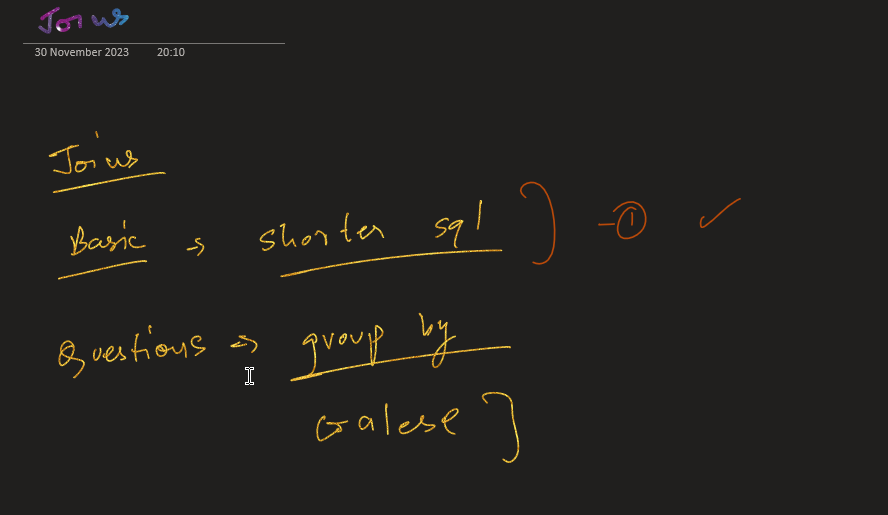 Joins
30 November 2023 20:10
Joins
Basic → shorter sql } - ①
Questions → group by